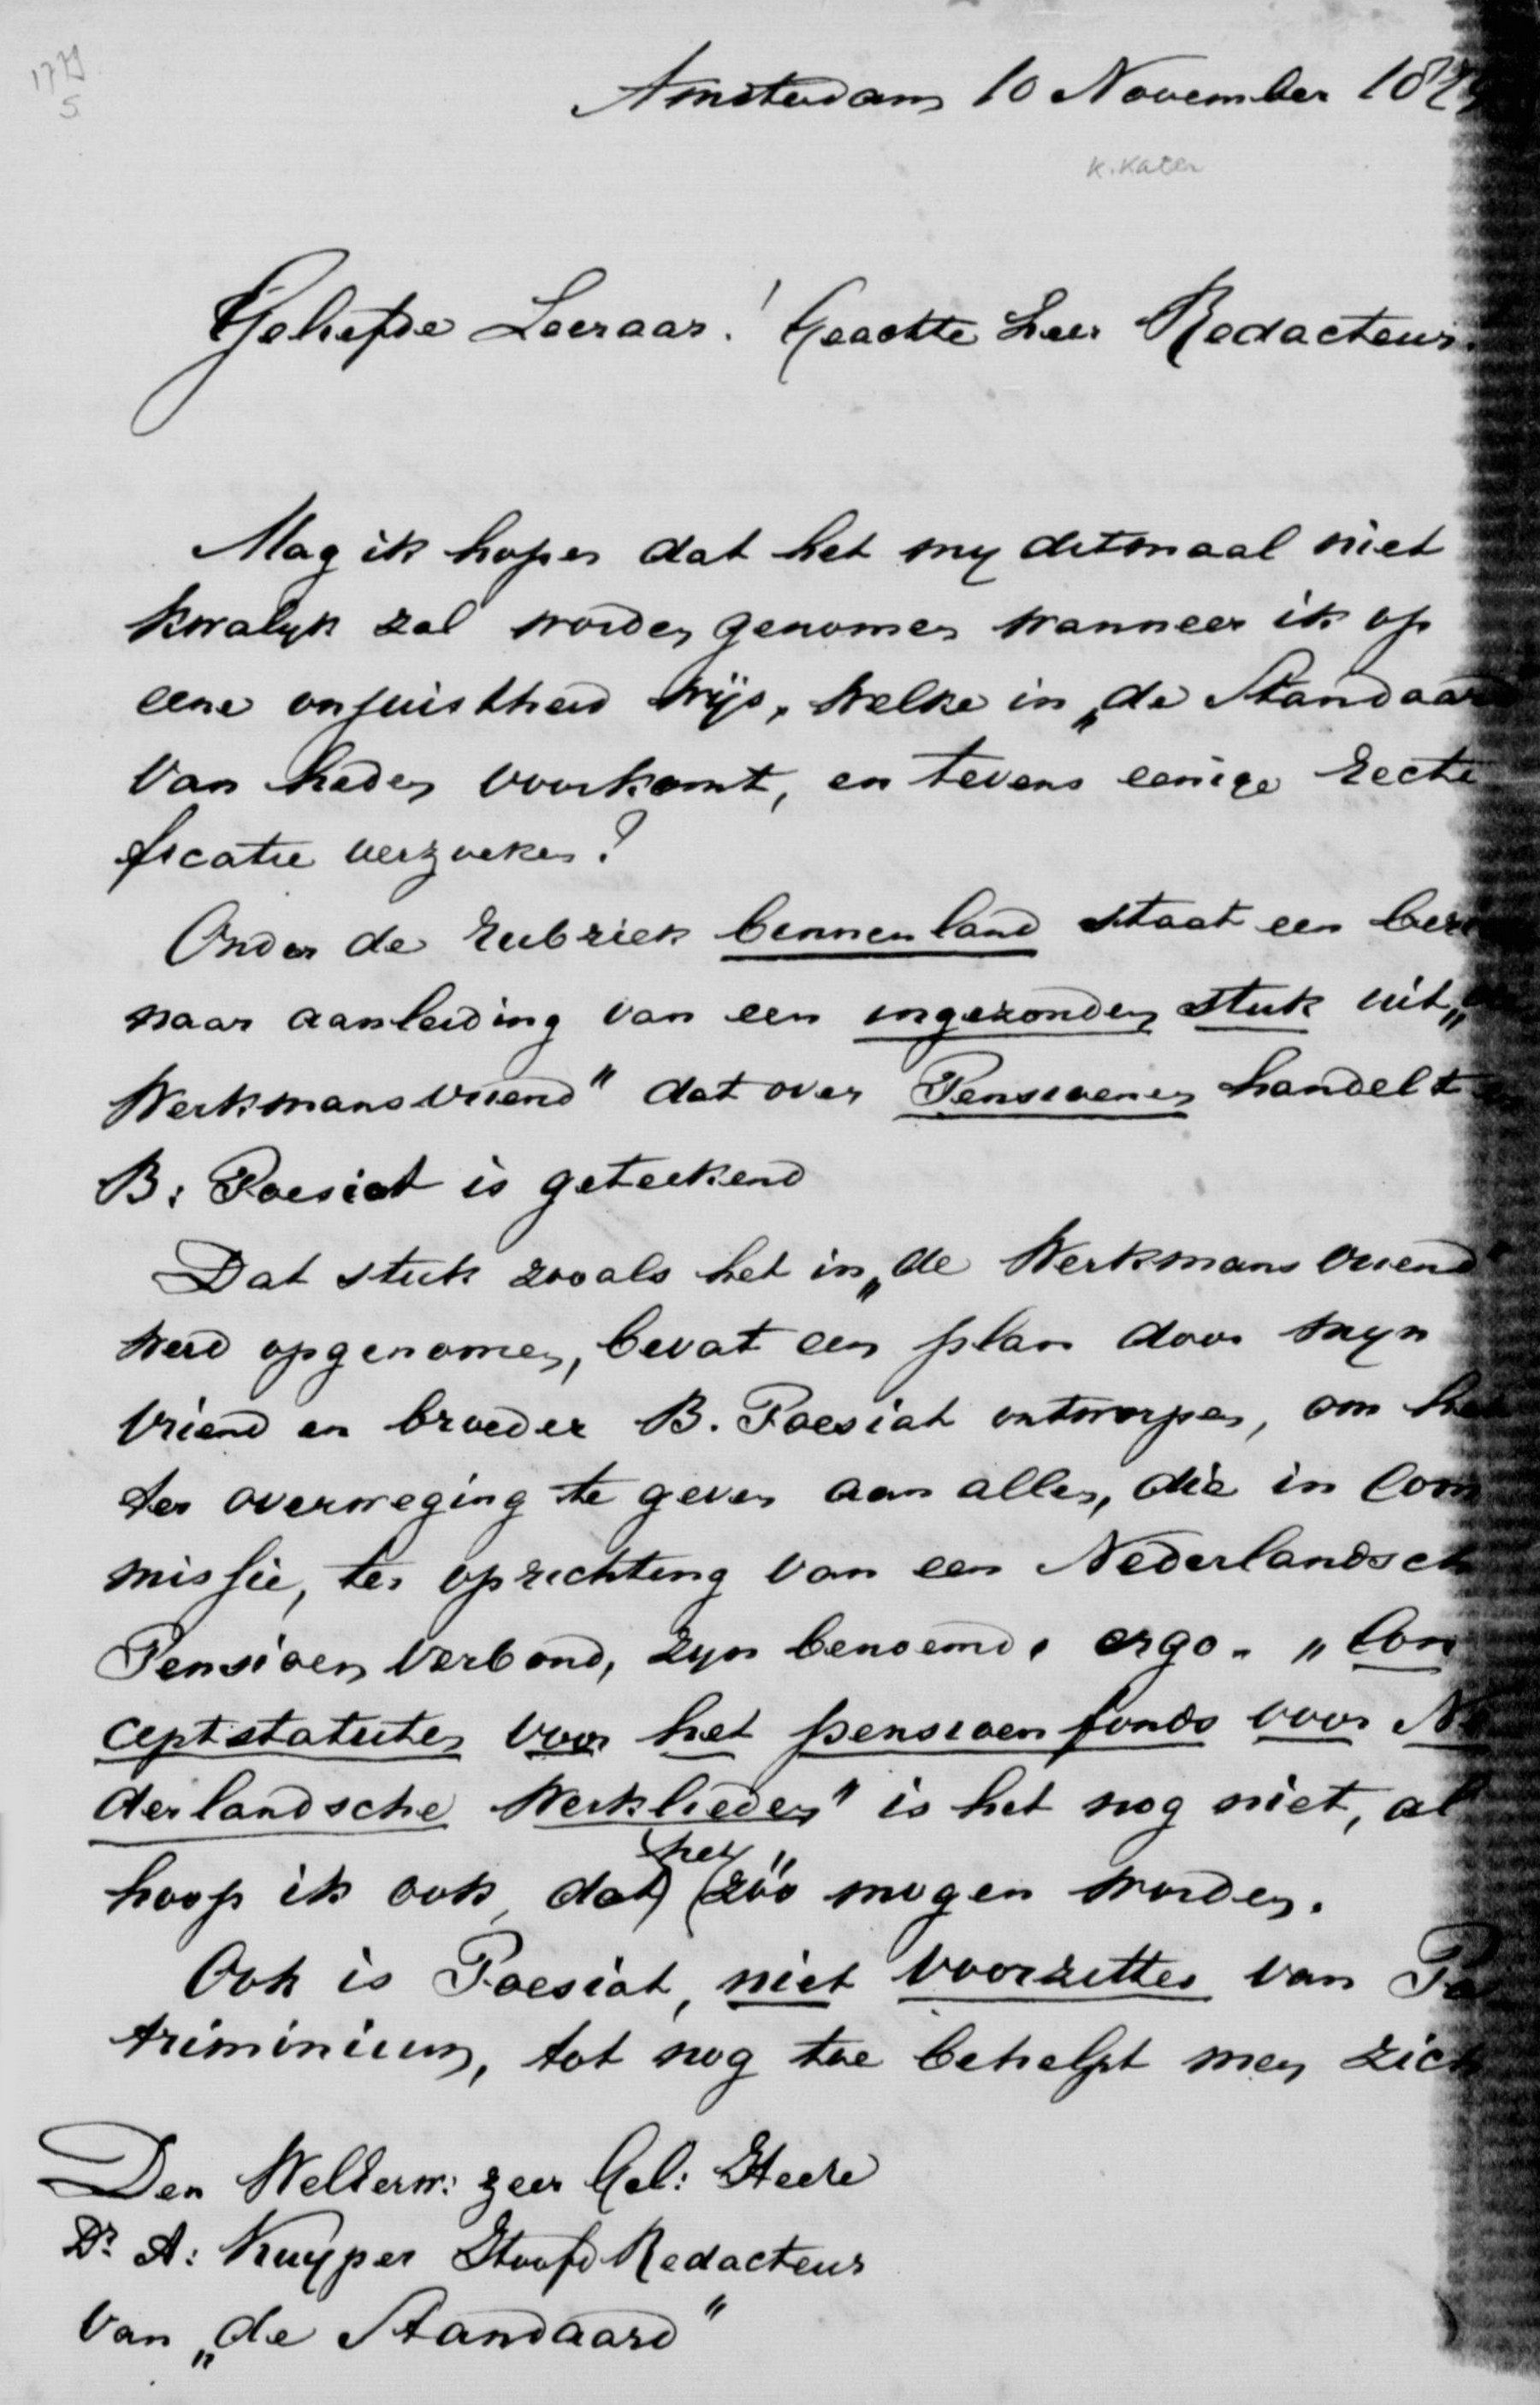 Amsterdam 10 November 187
K. Kater
Geliefde Leeraar! Geachte Heer Redacteur.
Mag ik hopen dat het my ditmaal niet
kwalyk zal worden genomen wanneer ik op
eene onjuistheid wijs, welke in „de Standaard
van heden voorkomt, en tevens eenige recti
ficatie verzoeken?
Onder de rubriek binnenland staat een
naar aanleiding van een ingezonden stuk uit „
Werkmansvriend" dat over Pensioenen handelt
B: Poesiat is geteekend
Dat stuk zooals het in „de Werkmansvriend"
werd opgenomen, bevat een plan door myn
vriend en broeder B. Poesiat ontworpen, om het
ter overweging te geven aan allen, die in Com
missie, ter oprichting van een Nederlandsch
Pensioen Verbond, zyn benoemd. ergo. „Con
ceptstatuten voor het pensioenfonds voor Ne
derlandsche Werklieden" is het nog niet, al
hoop ik ook, dat het zóó mogen worden.
Ook is Poesiat, niet voorzitter van Pa
triminium, tot nog toe behelpt men zich
Den WelEerw: zeer Gel: Heere
Dr A: Kuyper Hoofd Redacteur
van „de Standaard"